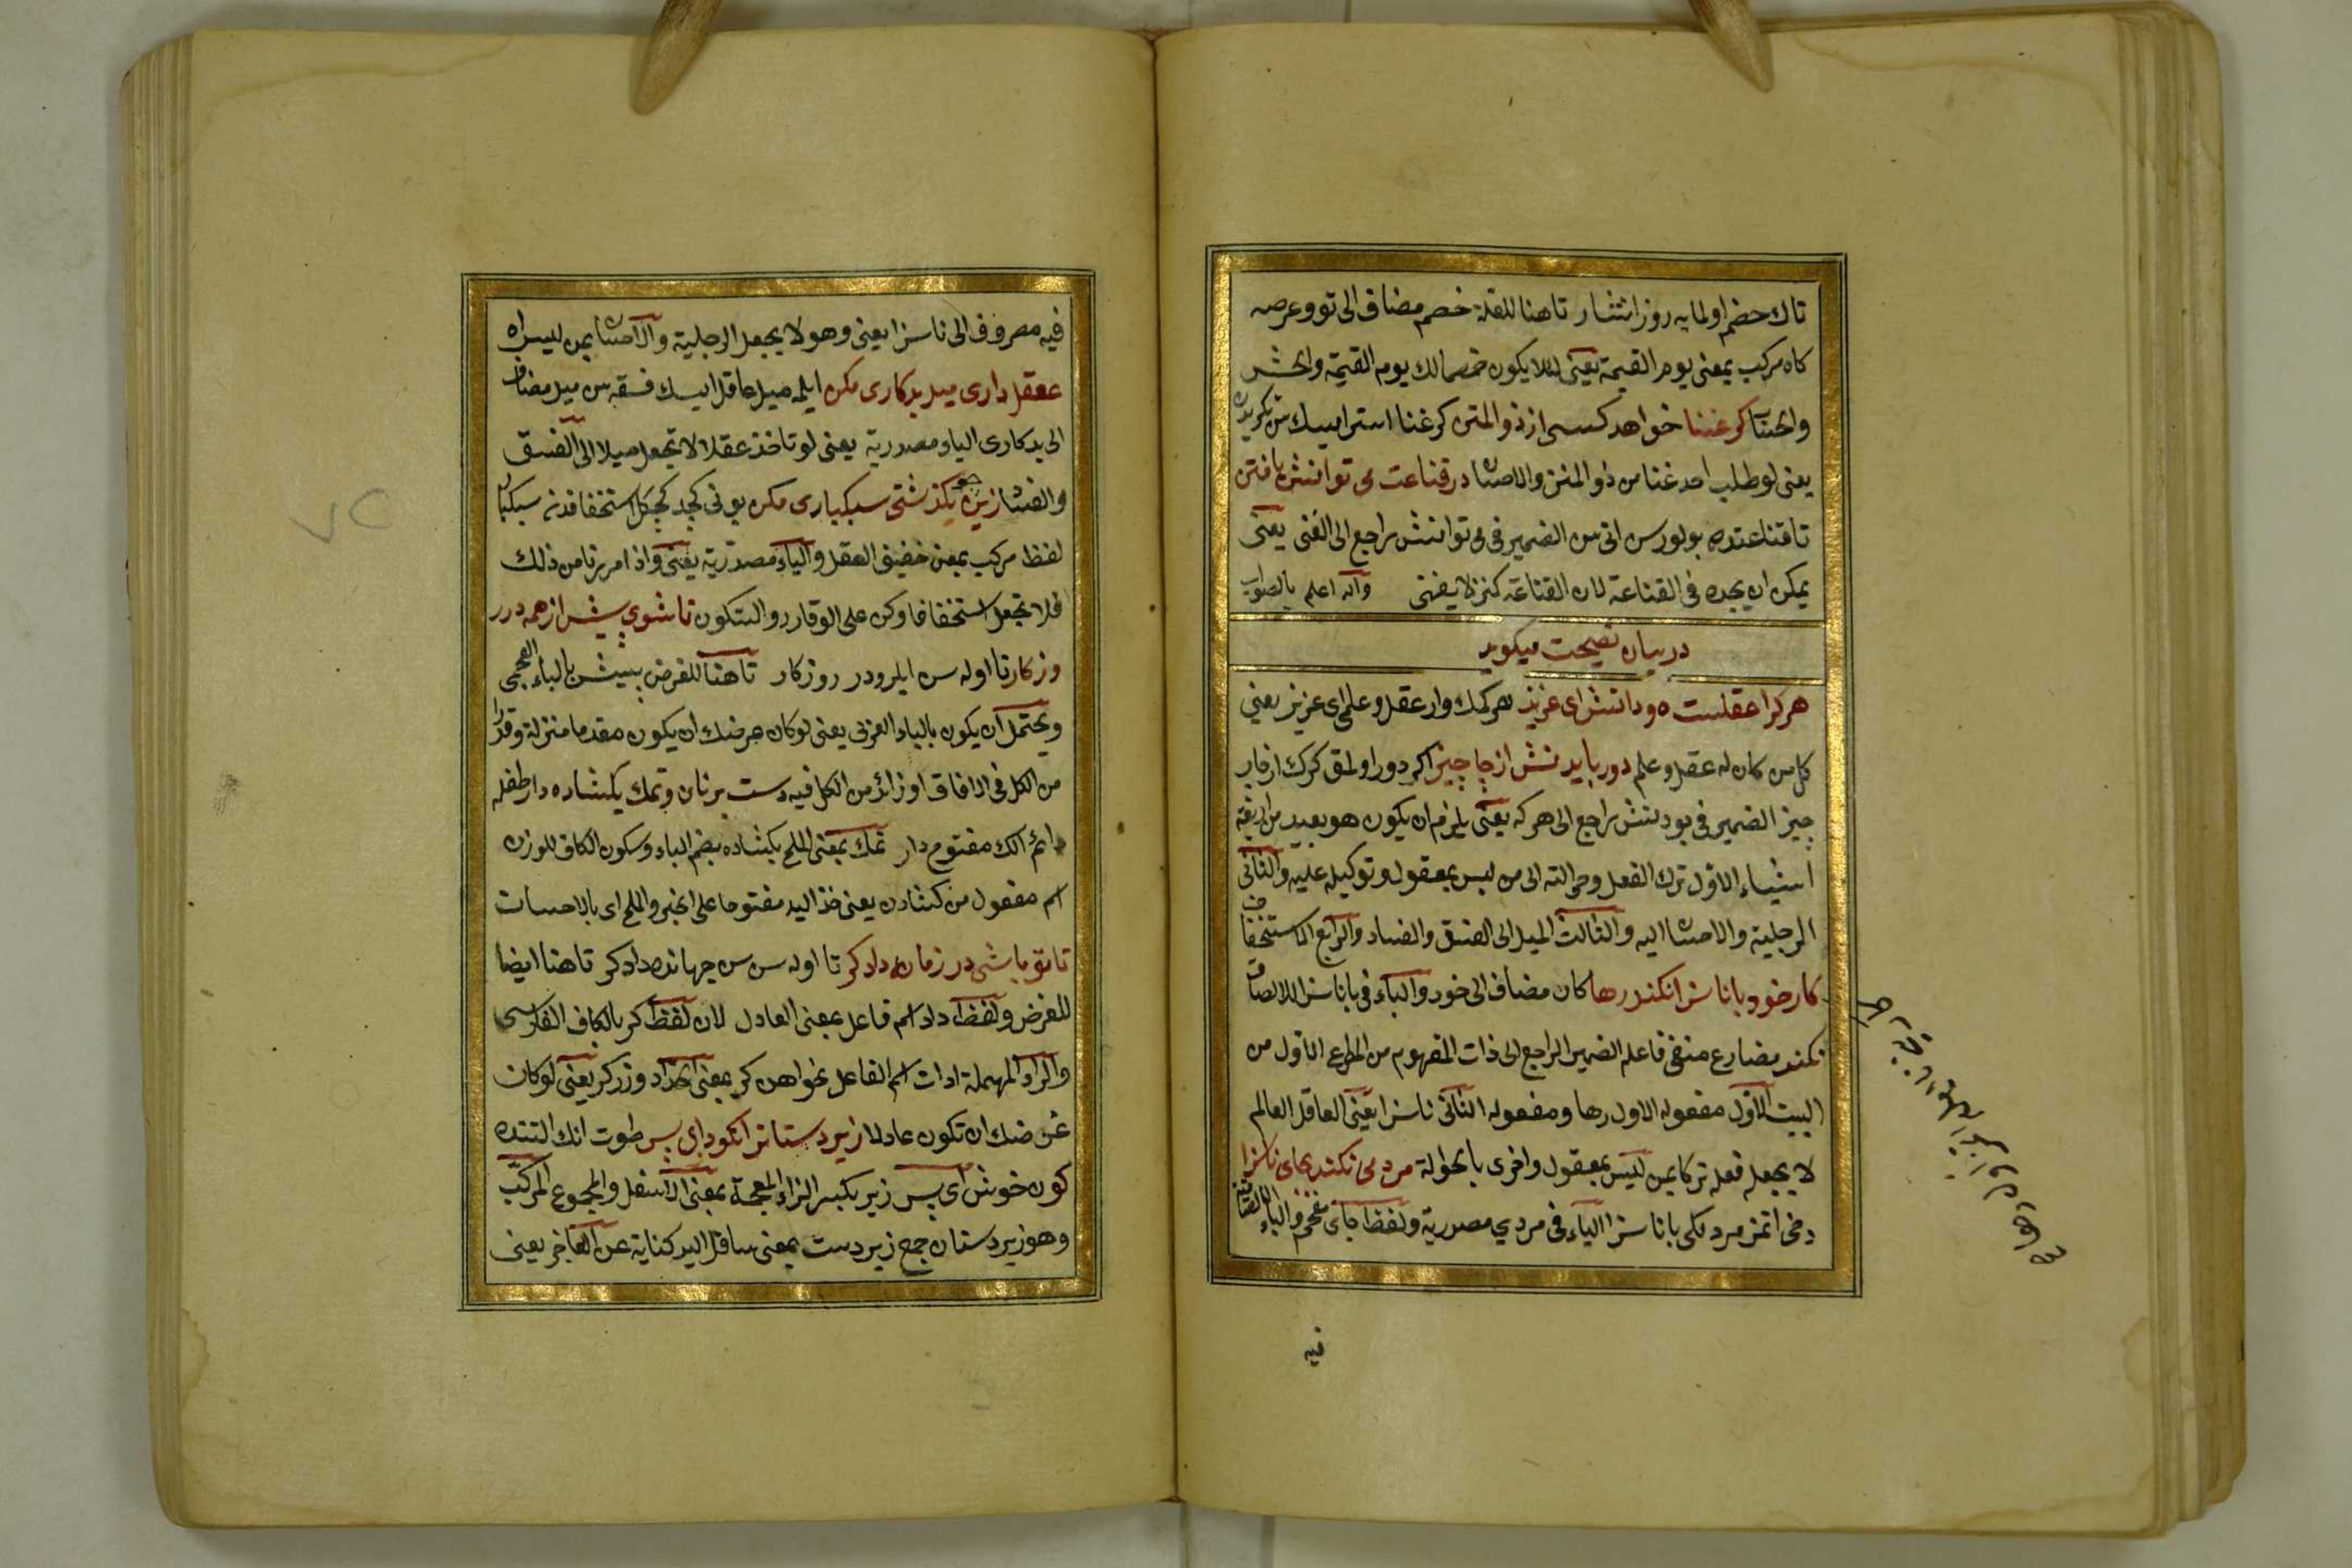 تاك خصم اولمايه روز انتشار تا هنا للعلة خصم مضاف الى تو وعرصه
كاه مركب بمعنى يوم القيمة يعنى لئلا يكون خصما لك يوم القيمة والحشر
كر غنا خواهد كسى از ذو المنن كر غنا استرايسك
يعنى لو طلب احد غنا من ذو المنن والاحسان در قناعت مى توانش يافتن
تا قناعتده بولورسن انى سن الضمير فى مى توانش راجع الى الغنى يعنى
يمكن ان يجده فى القناعة لان القناعة كنز لا يفنى والله اعلم بالصواب
در بيان نصيحت ميكويد
هر كرا عقلست و دانش اى عزيز هر كمك وار عقل و علمى اى عزيز يعنى
كل من كان له عقل و علم دور بايد بودنش از چار چيز اكر دور اولمق كرك از چار
چيز الضمير فى بودنش راجع الى هر كه يعنى يلزم ان يكون هو بعيد من اربعة
اشياء الاول ترك الفعل وحوالته الى من ليس بمعقول وتوكيله عليه والثانى
الرجلية والاحسان اليه والثالث الميل الى الفسق والفساد والرابع الاستخفاف
كار خود با ناسزا نكند رها كان مضاف الى خود والباء فى با ناسزا للالصاق
نكند مضارع منفى فاعله الضمير الراجع الى ذات المفهوم من المصرع الاول من
البيت الاول مفعوله الاول رها ومفعوله الثانى ناسزا يعنى العاقل العالم
لا يجعل فعله تركا بمن ليس بمعقول واخرى بالحوالة مردمى نكند بجاى ناسزا
دخى اتمز مردلكى با ناسزا الياء فى مردي مصدرية ولفظ جاى مفخم والباء
فيه
فيه مصروف الى ناسزا يعنى وهو لا يجعل الرجلية والاحسان بمن ليس له
عقل دارى ميل بدكارى مكن ايلمه ميل عاقل ايسك فسقه سن ميل مضاف
الى بدكارى الياء مصدرية يعنى لو تاخذ عقلا لا تجعل ميلا الى الفسق
والفساد زين چو بگذشتى سبكبارى مكن بونى كجد كچكل استخفا قدنه
لفظ مركب بمعنى خفيف العقل والياء مصدرية يعنى واذا مررنا من ذلك
فلا تجعل استخفافا وكن على الوقار والسكون تا شوى پيش از همه در
روزكار تا اوله سن ايلرودر روزكار تا هنا للغرض پيش بالباء العجمى
ويحتمل ان يكون بالباء العربى يعنى لو كان غرضك ان يكون مقدما منزلة وقدرا
من الكل فى الافاق او زائد من الكل فيه دست بر نان و نمك بگشاده دار طفله
اتمك الك مفتوح دار نمك بمعنى الملح بگشاده بضم الباء وسكون الكاف للوزن
اسم مفعول من كشادن يعنى خذ اليد مفتوحا على الخبز والملح اى بالاحسان
تا تو باشى در زمانه دادكر تا اوله سن سن جهانده دادكر تا هنا ايضا
للغرض ولفظ داد اسم فاعل بمعنى العادل لان لفظ كر بالكاف الفارسى
والراء المهملة ادات اسم الفاعل نحو آهن كر بمعنى الحداد وزركر يعنى لو كان
غرضك ان تكون عادلا زير دستانرا نكو دار اى پسر طوت انك التنده
كون خوش اى پسر زير بكسر الزاء المعجمة بمعنى الاسفل والمجموع المركب
وهو زير دستان جمع زير دست بمعنى سافل اليد كناية عن العاجز يعنى